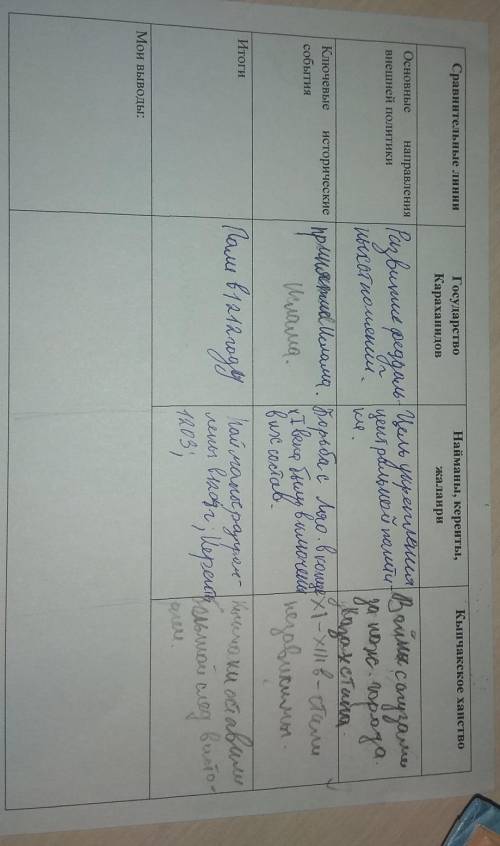 Сравнительные линии
Государство
Караханидов
Найманы, кереиты,
жалаири
Кыпчакское ханство
Основные направления
внешней политики
Развитие феодаль-
ных отношений.
Цель укрепления
центральной полити-
ки.
Войны с огузами
за юж. города
Казахстана.
Ключевые исторические
события
принятие Ислама.
Ислама.
Борьба с Ляо. в конце
XI века были включены
в их состав.
XI-XIII в - стали
независимы.
Итоги
Пали в 1212 году
Найманы
лены в
1203;
Кыпчаки оставили
большой след в исто-
Мои выводы: